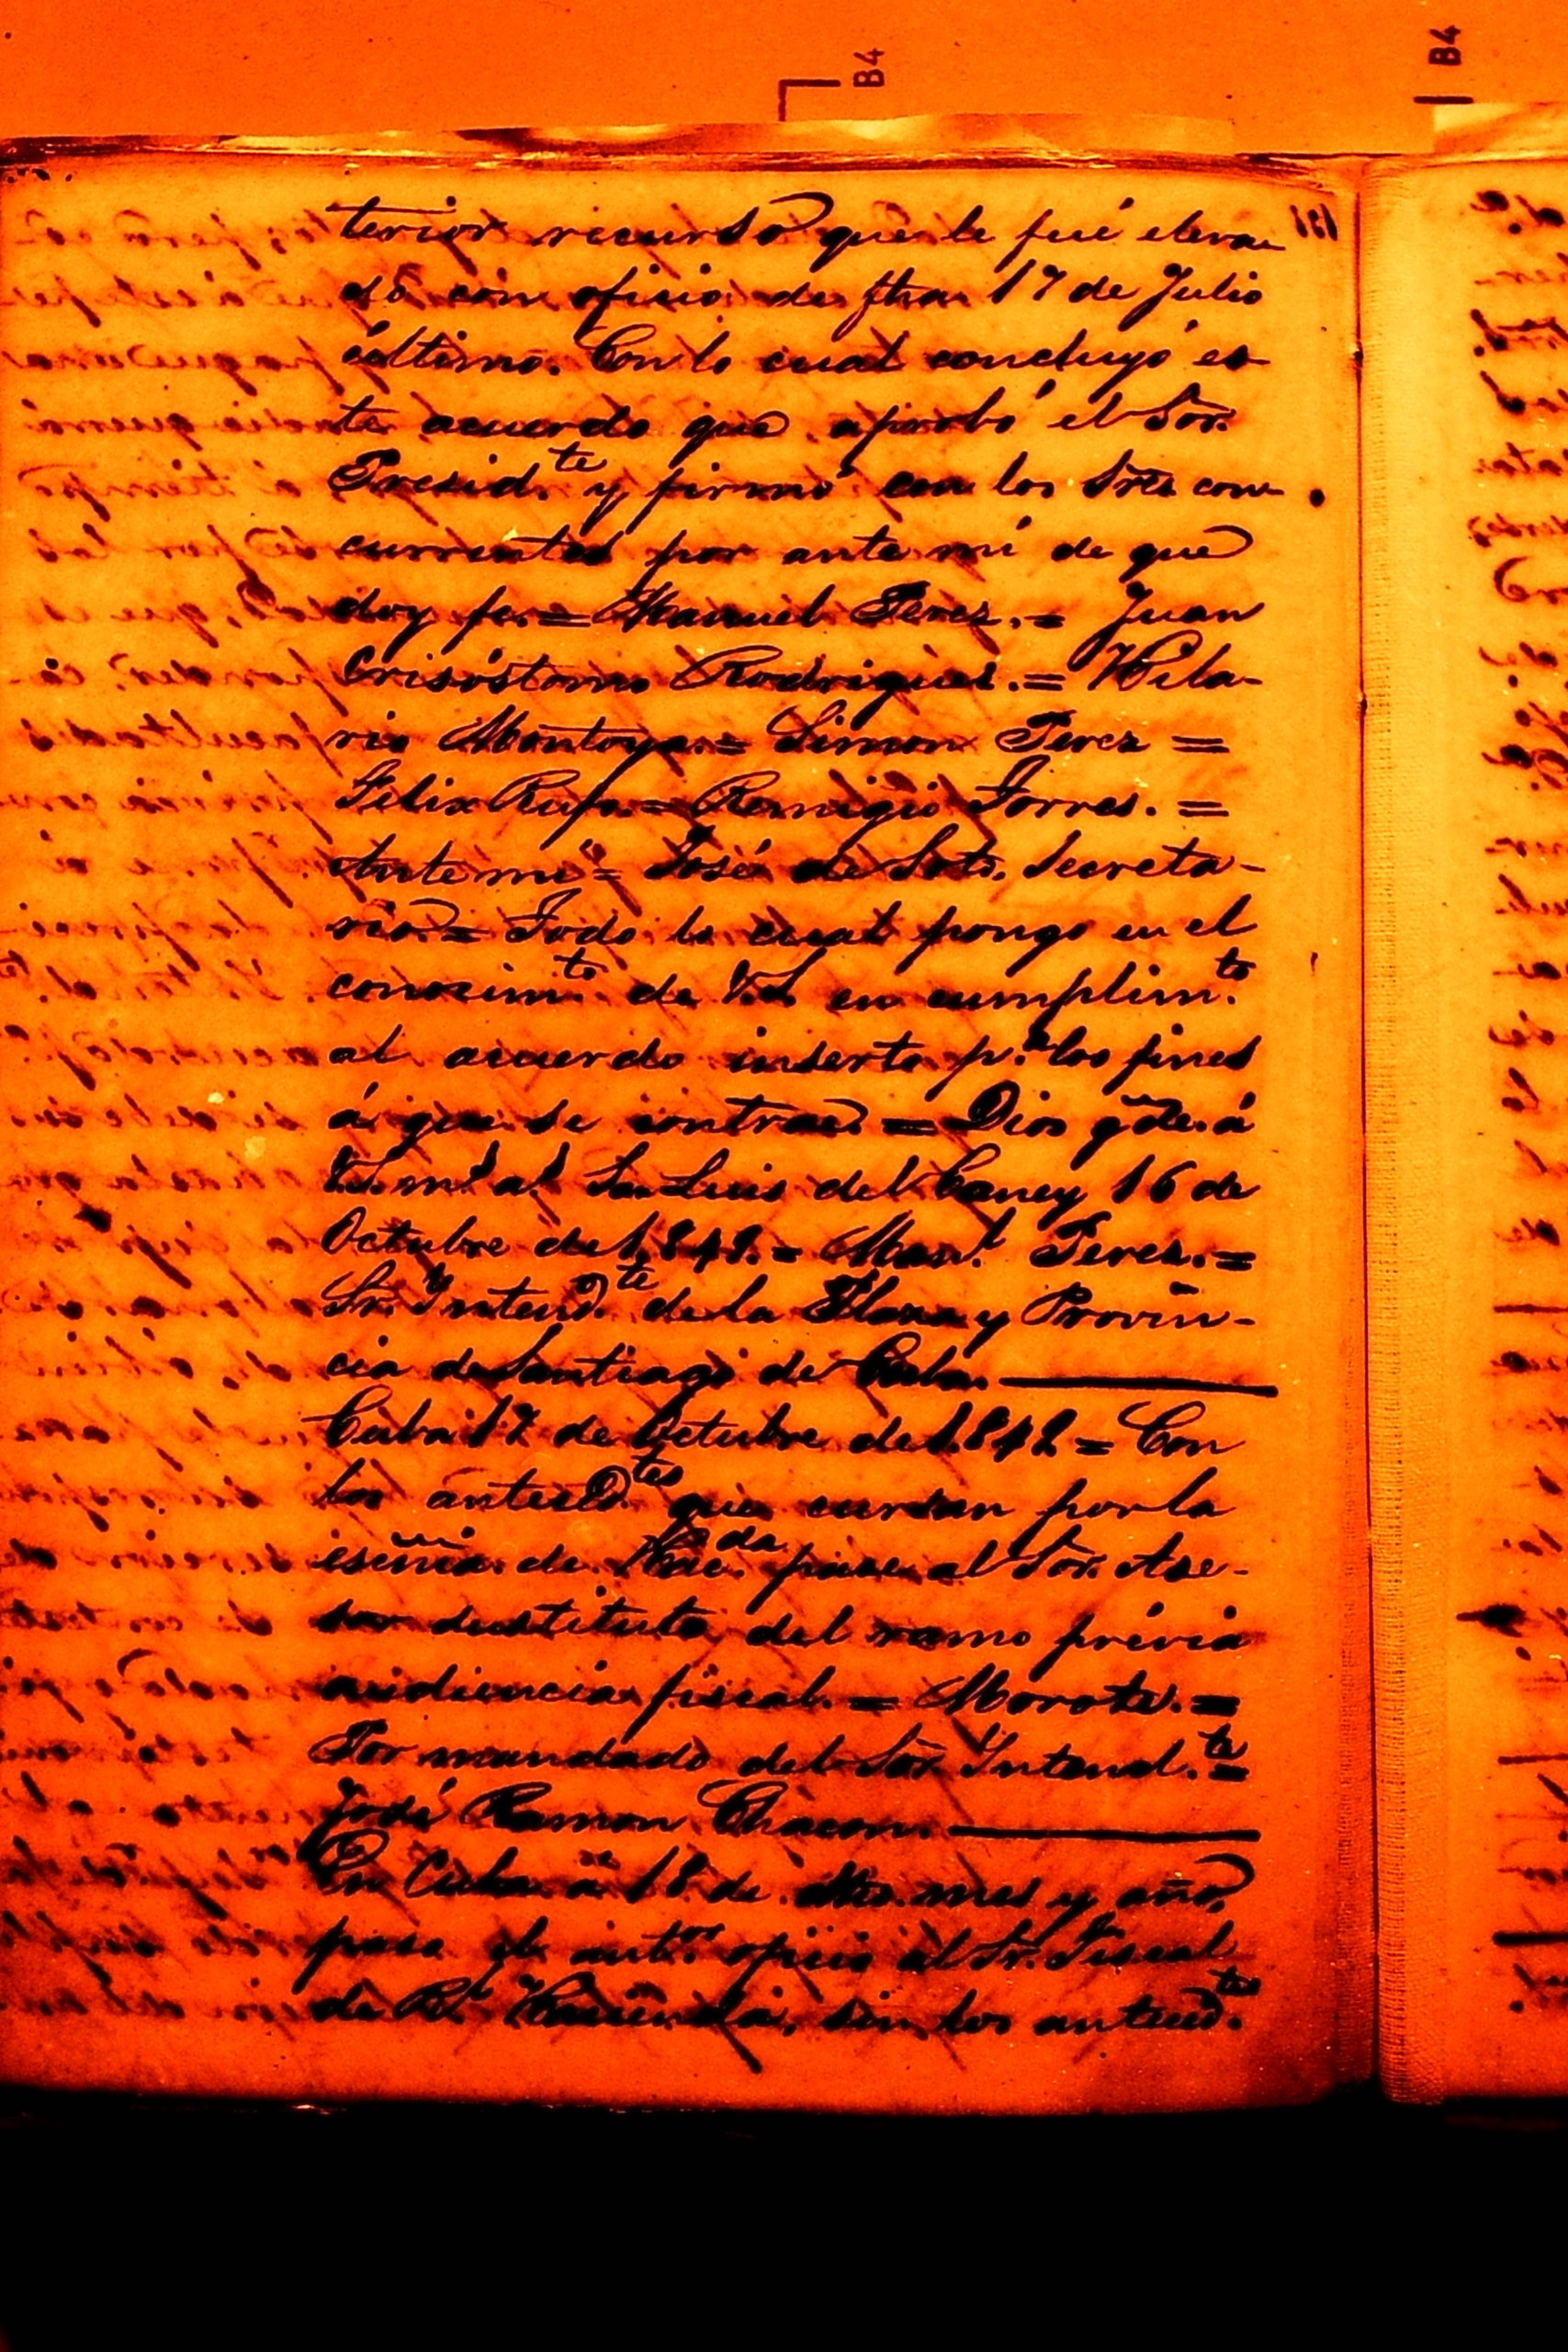 B4
B4
131
terior recurso que le fué eleva-
dõ con oficio de fha 17 de Julio
último. Con lo cual concluyó es-
te acuerdo que aprobó el Sor.
Presid.te y firmó con los Sres con-
currentes por ante mí de que
doy fe. = Manuel Perez. = Juan
Crisóstomo Rodrigues. = Hila-
rio Montoya. = Simon Perez =
Felix Rufo = Remigio Torres. =
Ante mí = José de Soto, Secreta-
rio. = Todo lo cual pongo en el
conocim.to de V.S. en cumplim.to
al acuerdo inserto p.a los fines
á que se contrae. = Dios gde. á
V.S. m.s a.s San Luis del Caney 16 de
Octubre de 1.842. = Man.l Perez. =
Sr. Intend.te de la Plaza y Provin-
cia de Santiago de Cuba.
Cuba 17 de Octubre de 1.842 = Con
los anteced.tes que cursan por la
esñia de Hac.da pase al Sor. Ase-
sor sustituto del ramo prévia
audiencia fiscal. = Morote. =
Por mandado del Sor. Intend.te =
José Ramon Chacon.
En Cuba á 18 de dho. mes y año,
pase el ant.or oficio al Sr. Fiscal
de R.l Hacienda, sin los anteced.tes